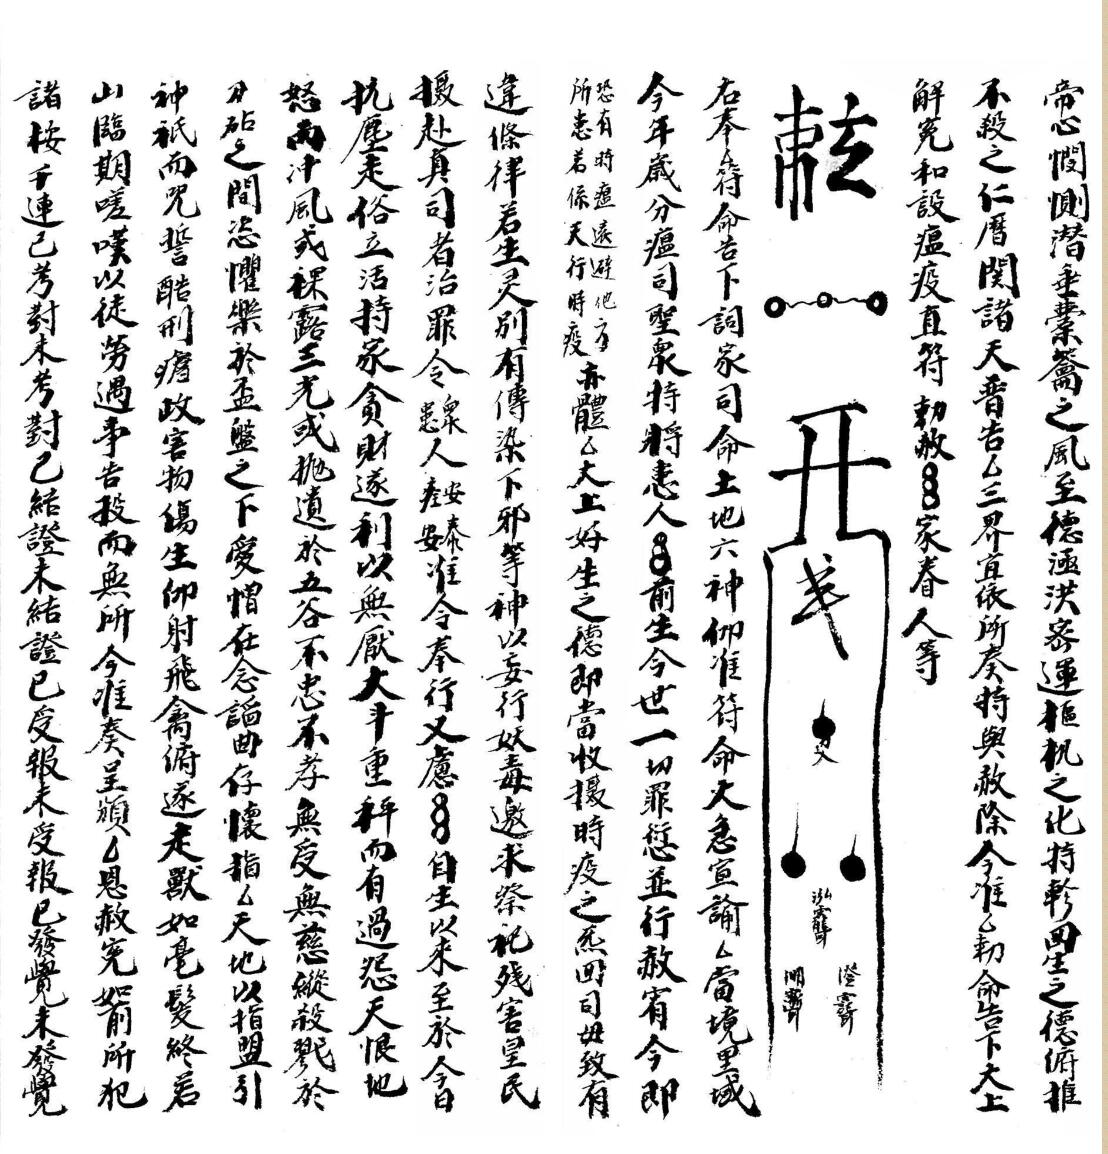 帝心憫惻潛垂橐籥之風至德涵洪密運樞机之化特軫回生之德俯推
不殺之仁曆関諸天普告厶三界宜依所奏特與赦除今准厶勅命告下太上
解冤和設瘟疫直符勅赦8家眷人等
泓靈
右奉厶符命告下詞家司命土地六神仰准符命火急宣諭厶當境里域
今年歲分瘟司聖衆特將患人8前生今世一切罪愆並行赦宥今即
恐有時瘟遠避他方
所患若係天行時疫
亦體厶太上好生之德即當收攝時疫之炁回司毋致有
違條律若生灵別有傳染下邪等神以妄行妖毒邀求祭祀残害皇民
攝赴真司者治罪令
患人安泰准令奉行又慮8自生以來至於今日
抗塵走俗立活持家貪財逐利以無厭大斗重秤而有過怨天恨地
怒雨冲風或裸露三光或抛遺於五谷不忠不孝無受無慈縱殺戮於
刀砧之間恣懼樂於盃盤之下愛憎在念諂曲存懷指厶天地以指盟引
神祇而咒誓酷刑虐政害物傷生仰射飛禽俯逐走獸如毫髮終若
山臨期嗟嘆以徒勞遇事告投而無所今准奏呈頒厶恩赦宽如前所犯
諸桉干連已考對未考對已結證未結證已受報未受報已發覺未發覺